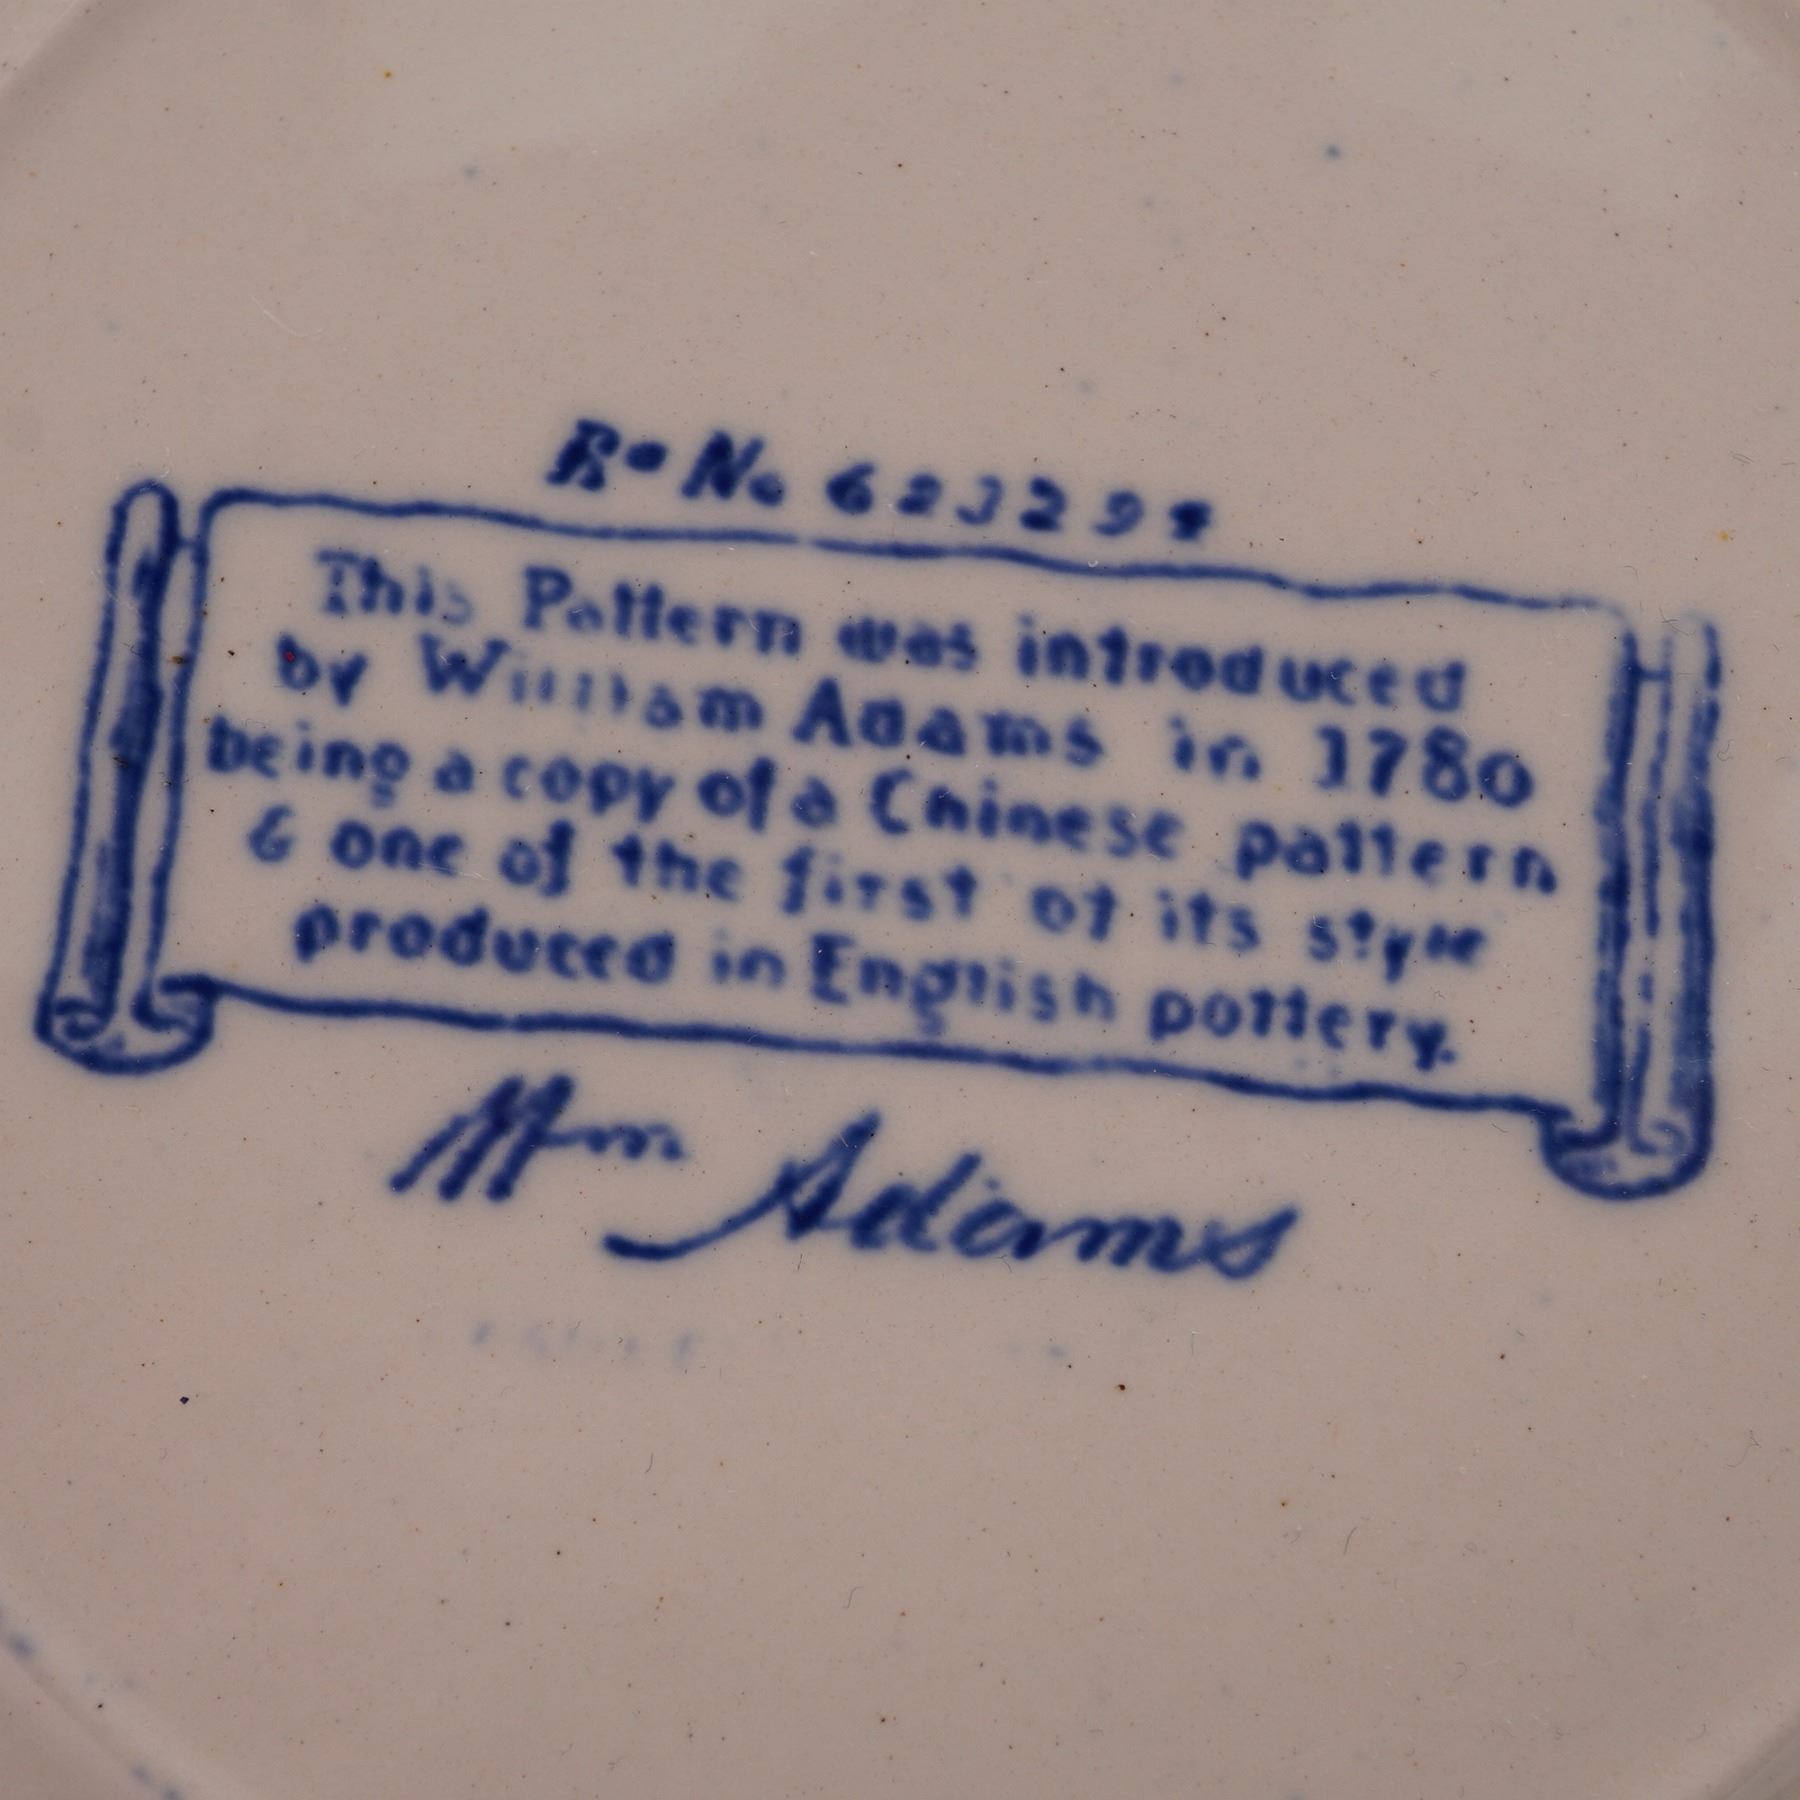 Rᵒ No 623294
This Pattern was introduced
by William Adams in 1780
being a copy of a Chinese pattern
& one of the first of its style
produced in English pottery.
Wm Adams